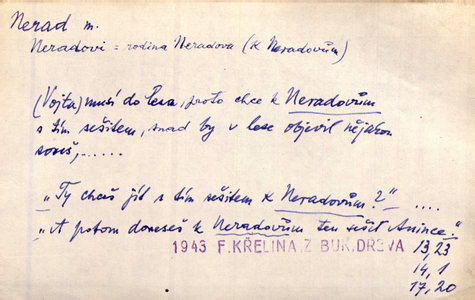 Nerad m.
Neradovi = rodina Neradova (k Neradovům)
(Vojta) musí do lesa, proto chce k Neradovům
s tím sešitem, snad by v lese objevil nějakou
souš,......
"Ty chceš jít s tím sešitem k Neradovům?" ....
"A potom doneseš k Neradovům ten sešit Anince."
1943 F. KŘELINA, Z BUK. DŘEVA 13,23
14,1
17,20